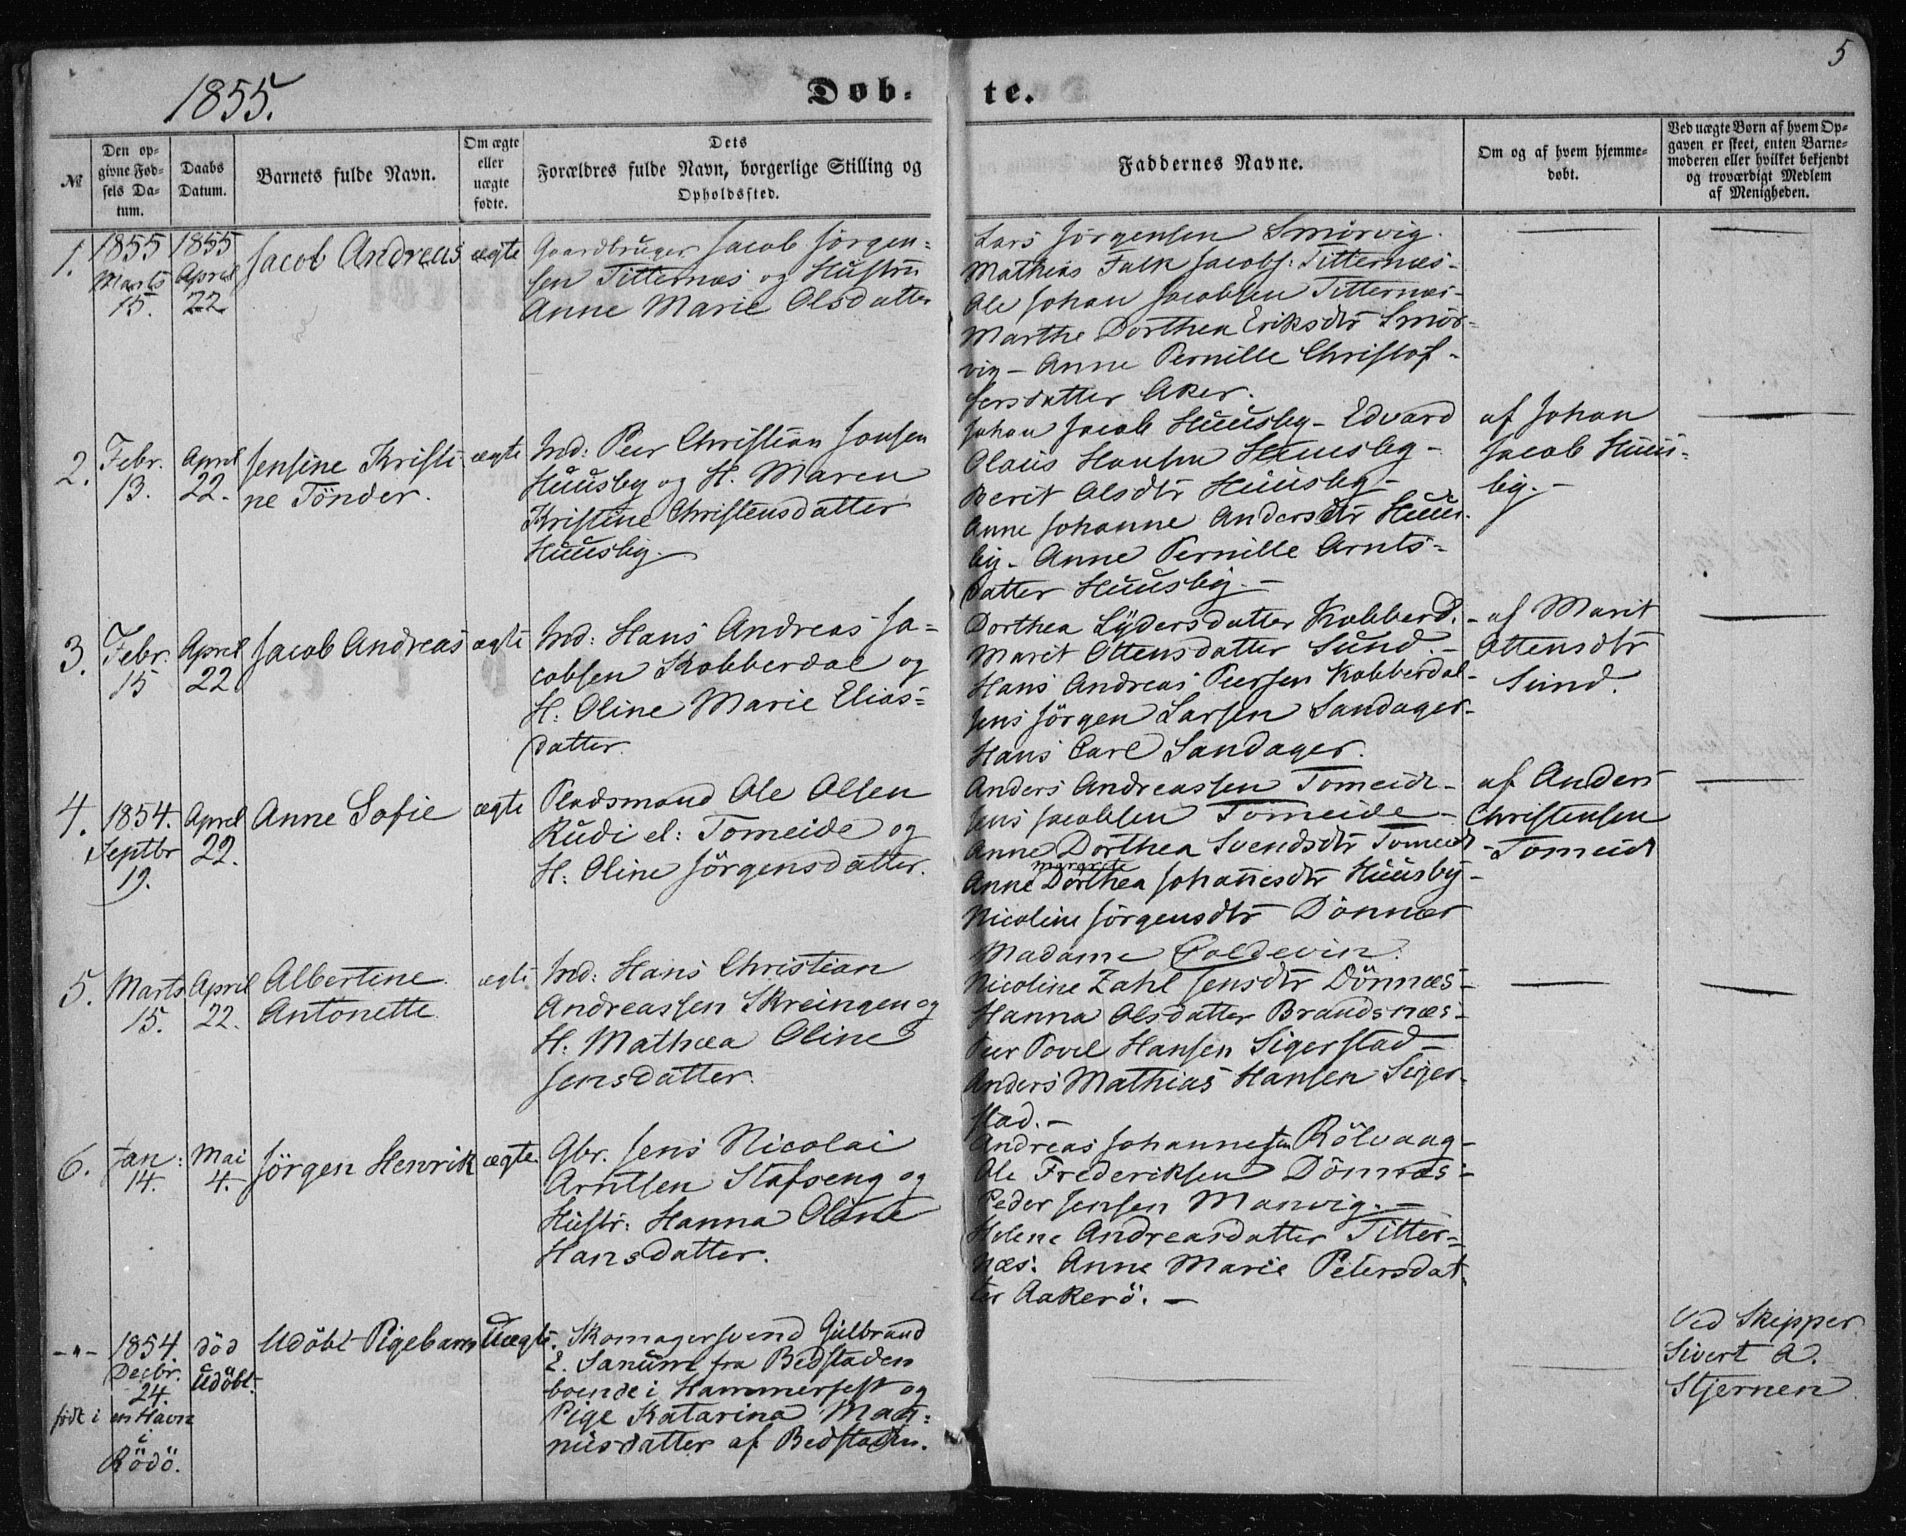 5
1855.
Døb-
te.
№
Den op-
givne Fød-
sels Da-
tum.
Daabs
Datum.
Barnets fulde Navn.
Om ægte
eller
uægte
fødte.
Dets
Forældres fulde Navn, borgerlige Stilling og
Opholdssted.
Faddernes Navne.
Om og af hvem hjemme-
døbt.
Ved uægte Børn af hvem Op-
gaven er skeet, enten Barne-
moderen eller hvilket bekjendt
og troværdigt Medlem
af Menigheden.
1.
1855
Marts
15.
1855
April
22
Jacob Andreas
ægte
Gaardbruger Jacob Jørgen=
sen Titternæs og Hustru
Anne Marie Olsdatter
Lars Jørgensen Smørvig.
Mathias Falk Jacobs: Titternæs-
Ole Johan Jacobsen Titternæs-
Marthe Dorthea Eriksdtr Smør-
vig - Anne Pernille Christof-
fersdatter Aker.
2.
Febr.
13.
April
22.
Jensine Kristi
ne Tönder.
ægte
Ind: Peer Christian Jonsen
Huusby og H. Maren
Kristine Christensdatter
Huusby.
Johan Jacob Huusby - Edvard
Olaus Hansen Huusby -
Berit Olsdtr Huusby -
Anne Johanne Andersdtr Huus-
by - Anne Pernille Arnts-
datter Huusby. -
af Johan
Jacob Huus-
by. -
3.
Febr:
15
April
22
Jacob Andreas
ægte
Ind: Hans Andreas Ja=
cobsen Kobberdal og
H: Oline Marie Elias=
datter.
Dorthea Lydersdatter Kobberd. -
Marit Ottensdatter Sund. -
Hans Andreas Peersen Kobberdal -
Jens Jörgen Larsen Sandager -
Hans Carl Sandager.
af Marit
Ottensdtr
Sund.
4.
1854.
Septbr
19.
April
22.
Anne Sofie
ægte
Pladsmand Ole Olsen
Rudi el: Tomeide og
H: Oline Jörgensdatter.
Anders Andreassen Tomeide -
Jens Jacobsen Tomeide -
Anne Dorthea Svendsdtr Tomeid -
margrete
Anne Dorthea Johannesdtr Huusby -
Nicoline Jörgensdtr Dönnæs
Madame Coldevin.
af Anders
Christensen
Tomeide
5.
Marts
15.
April
22.
Albertine
Antonette
ægte
Ind: Hans Christian
Andreassen Skreingen og
H. Mathea Oline
Jensdatter.
Nicoline Zahl Jensdtr Dönnæs -
Hanna Olsdatter Brandsnæs -
Peer Povel Hansen Sigerstad -
Anders Mathias Hansen Siger-
stad. -
6.
Jan:
14.
Mai
4.
Jörgen Henrik
ægte.
Gbr. Jens Nicolai
Arntsen Stafseng og
Hustr: Hanna Oline
Hansdatter.
Andreas Johannessen Rölvaag -
Ole Frederiksen Dönnæs -
Peder Jensen Manvig. -
Helene Andreasdatter Titter=
næs. Anne Marie Petersdat
ter Aakerö. -
- " -
1854
Decbr.
24.
født i en Havn
i
Rödö.
död
Udöbt.
Udöbt Pigebarn
Uægte.
Skomagersvend Gulbrand
E. Sanum fra Bedstaden
boende i Hammerfest og
Pige Katarina Mag=
nusdatter af Bedstaden.
Ved Skipper
Sivert A.
Stjernen